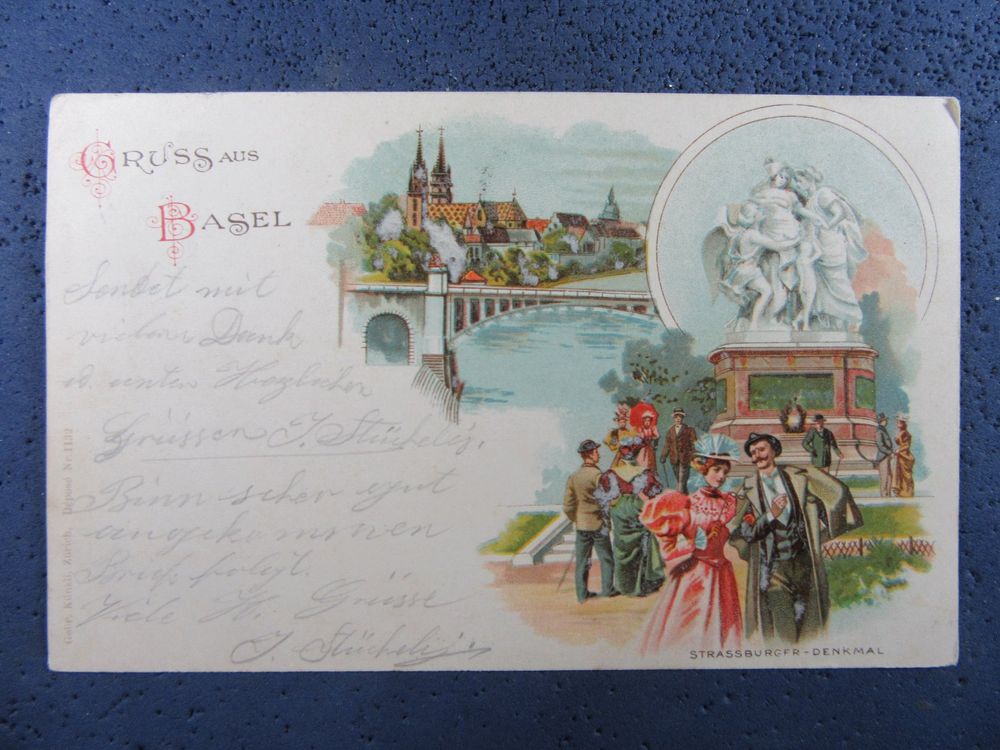 GRUSS AUS
BASEL
Sendet mit
vielem Dank
u. unter Herzlichen
Grüssen J. Stückelis.
Binn scher gut
angekommen
Brief folgt.
Viele H. Grüsse
J. Stückelis
STRASSBURGER-DENKMAL
Gebr. Künzli, Zürich, Déposé Nr. 1132